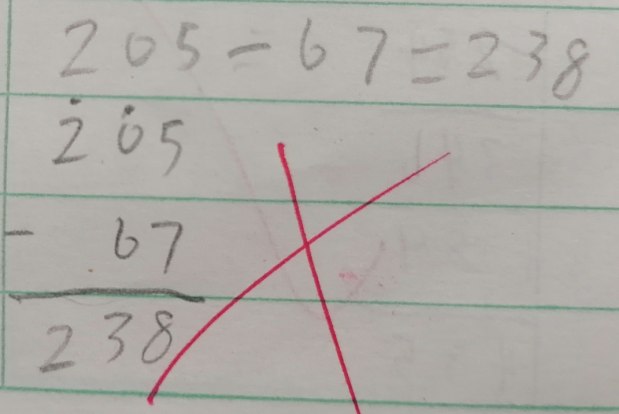 205-67=238
205
- 67
238